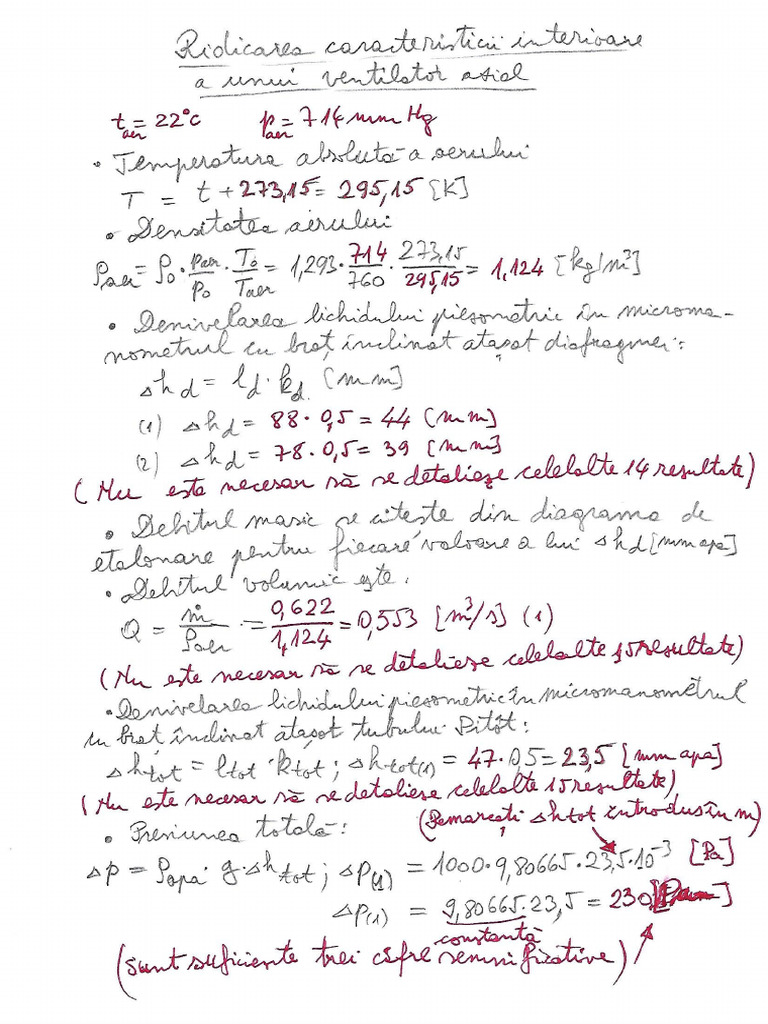 Ridicarea caracteristicii interioare
a unui ventilator axial
t_aer = 22°C p_aer = 714 mm Hg
• Temperatura absolută a aerului
T = t + 273,15 = 295,15 [K]
• Densitatea aerului
ρ_aer = ρ_0 · p_aer/p_0 · T_0/T_aer = 1,293 · 714/760 · 273,15/295,15 = 1,124 [kg/m³]
• Denivelarea lichidului piezometric în microma-
nometrul cu braț înclinat atașat diafragmei:
Δh_d = l_d · k_d [mm]
(1) Δh_d = 88 · 0,5 = 44 [mm]
(2) Δh_d = 78 · 0,5 = 39 [mm]
(Nu este necesar să se detalieze celelalte 14 rezultate)
• Debitul masic se citește din diagrama de
etalonare pentru fiecare valoare a lui Δhd [mm apă]
• Debitul volumic este:
Q = ṁ/ρ_aer = 0,622/1,124 = 0,553 [m³/s] (1)
(Nu este necesar să se detalieze celelalte 15 rezultate)
• Denivelarea lichidului piezometric în micromanometrul
cu braț înclinat atașat tubului Pitôt:
Δh_tot = l_tot · k_tot ; Δh_tot(1) = 47 · 0,5 = 23,5 [mm apă]
(Nu este necesar să se detalieze celelalte 15 rezultate)
• Presiunea totală: (Remarcați Δh tot introdus în m)
Δp = ρ_apă · g · Δh_tot ; Δp_(1) = 1000 · 9,80665 · 23,5 · 10⁻³ [Pa]
Δp_(1) = 9,80665 · 23,5 = 230
constantă
(sunt suficiente trei cifre semnificative)